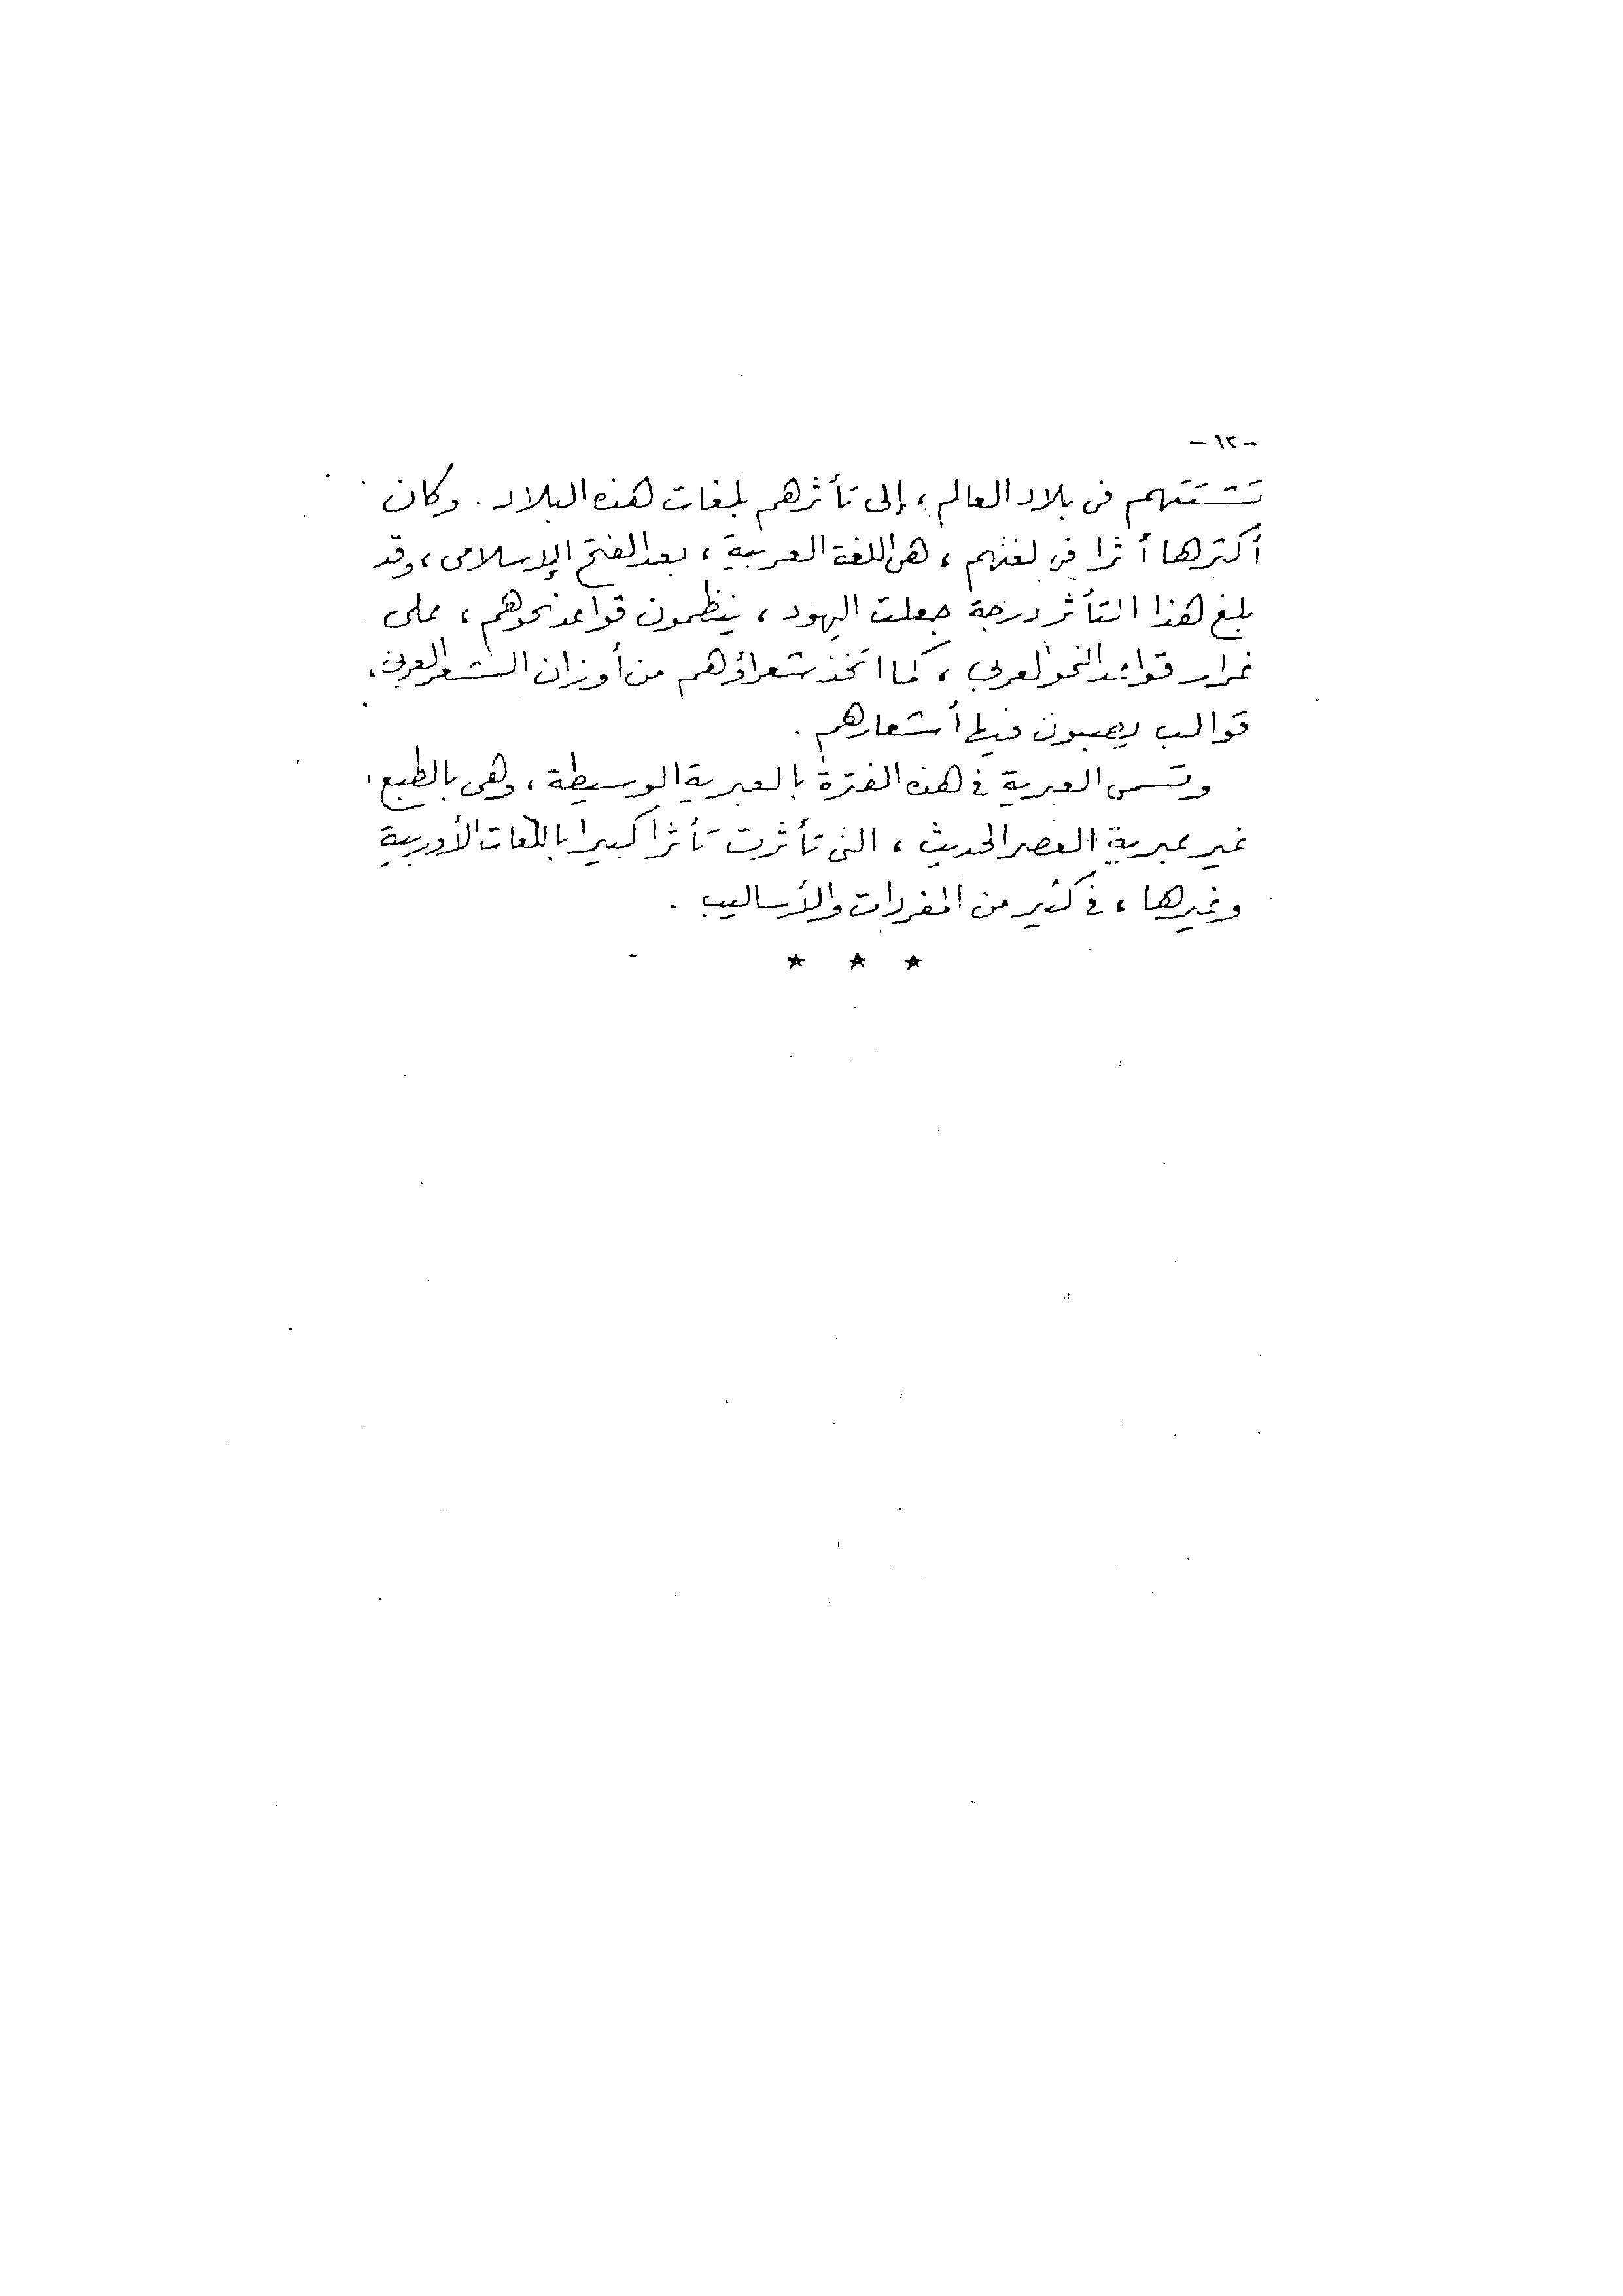 - ١٢ -
تشتتهم فى بلاد العالم ، إلى تأثرهم بلغات هذه البلاد . وكان
أكثرها أثرا فى لغتهم ، هى اللغة العربية ، بعد الفتح الإسلامى ، وقد
بلغ هذا التأثر درجة جعلت اليهود ، ينظمون قواعد نحوهم ، على
غرار قواعد النحو العربى ، كما اتخذ شعراؤهم من أوزان الشعر العربى ،
قوالب يصبون فيها أشعارهم .
وتسمى العبرية فى هذه الفترة بالعبرية الوسيطة ، وهى بالطبع ،
غير عبرية العصر الحديث ، التى تأثرت تأثرا كبيرا باللغات الأوربية
وغيرها ، فى كثير من المفردات والأساليب .
★ ★ ★